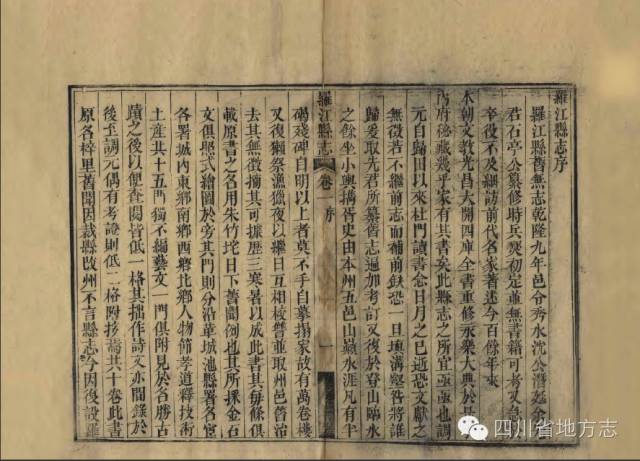 羅江縣志序
羅江縣舊無志乾隆九年邑令秀水沈公潛始余
君石亭公纂修時兵燹初定並無書籍可考又急
卒役不及細訪前代名家著述今百餘年來
本朝文教光昌大開四庫全書重修永樂大典於是
內府秘藏幾乎家有其書矣此縣志之所宜亟亟也調
元自歸田以來杜門讀書念日月之已逝恐文獻之
無徵若不繼前志而補前缺恐一旦填溝壑咎將誰
歸爰取先君所纂舊志逦加考訂又復於登山臨水
之餘坐小輿擕胥史由本州五邑山巔水涯凡有半
碣殘碑自明以上者莫不手自摹搨家故有萬卷樓
又復獺祭漁獵夜以繼日互相稜讐並取州邑舊治
去其無徵摘其可據歷三寒暑以成此書其每條俱
載原書之名用朱竹垞日下舊聞例也其所採金石
文俱照式繪圖於旁其門則分沿革城池縣署名宦
各署城內東鄉南鄉西鄉北鄉人物節孝道釋技術
土產共十五門獨不編藝文一門俱附見於名勝古
蹟之後以便查閱皆低一格其拙作詩文亦間錄於
後至調元偶有考證則低二格附按焉共十卷此書
原名梓里舊聞因裁縣改州不言縣志今因復設羅
羅江縣志
卷一序
一
四川省地方志